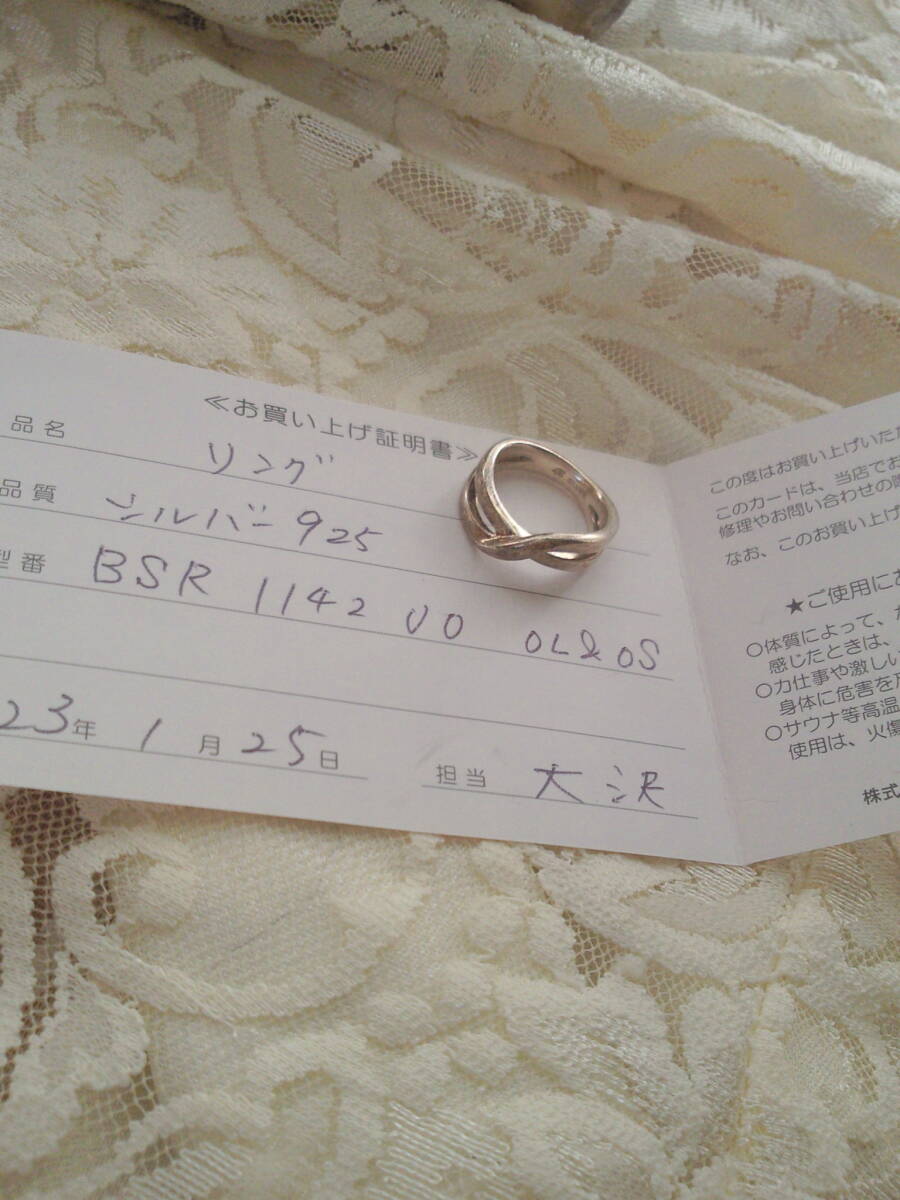 ≪お買い上げ証明書≫
品名 リング
品質 シルバー925
型番 BSR 1142 00 OL&OS
23年 1月 25日
担当 大沢
この度はお買い上げいた
このカードは、当店でお
修理やお問い合わせの際
なお、このお買い上げ
★ご使用にあ
○体質によって、か
感じたときは、
○力仕事や激しい
身体に危害を及
○サウナ等高温
使用は、火傷
株式